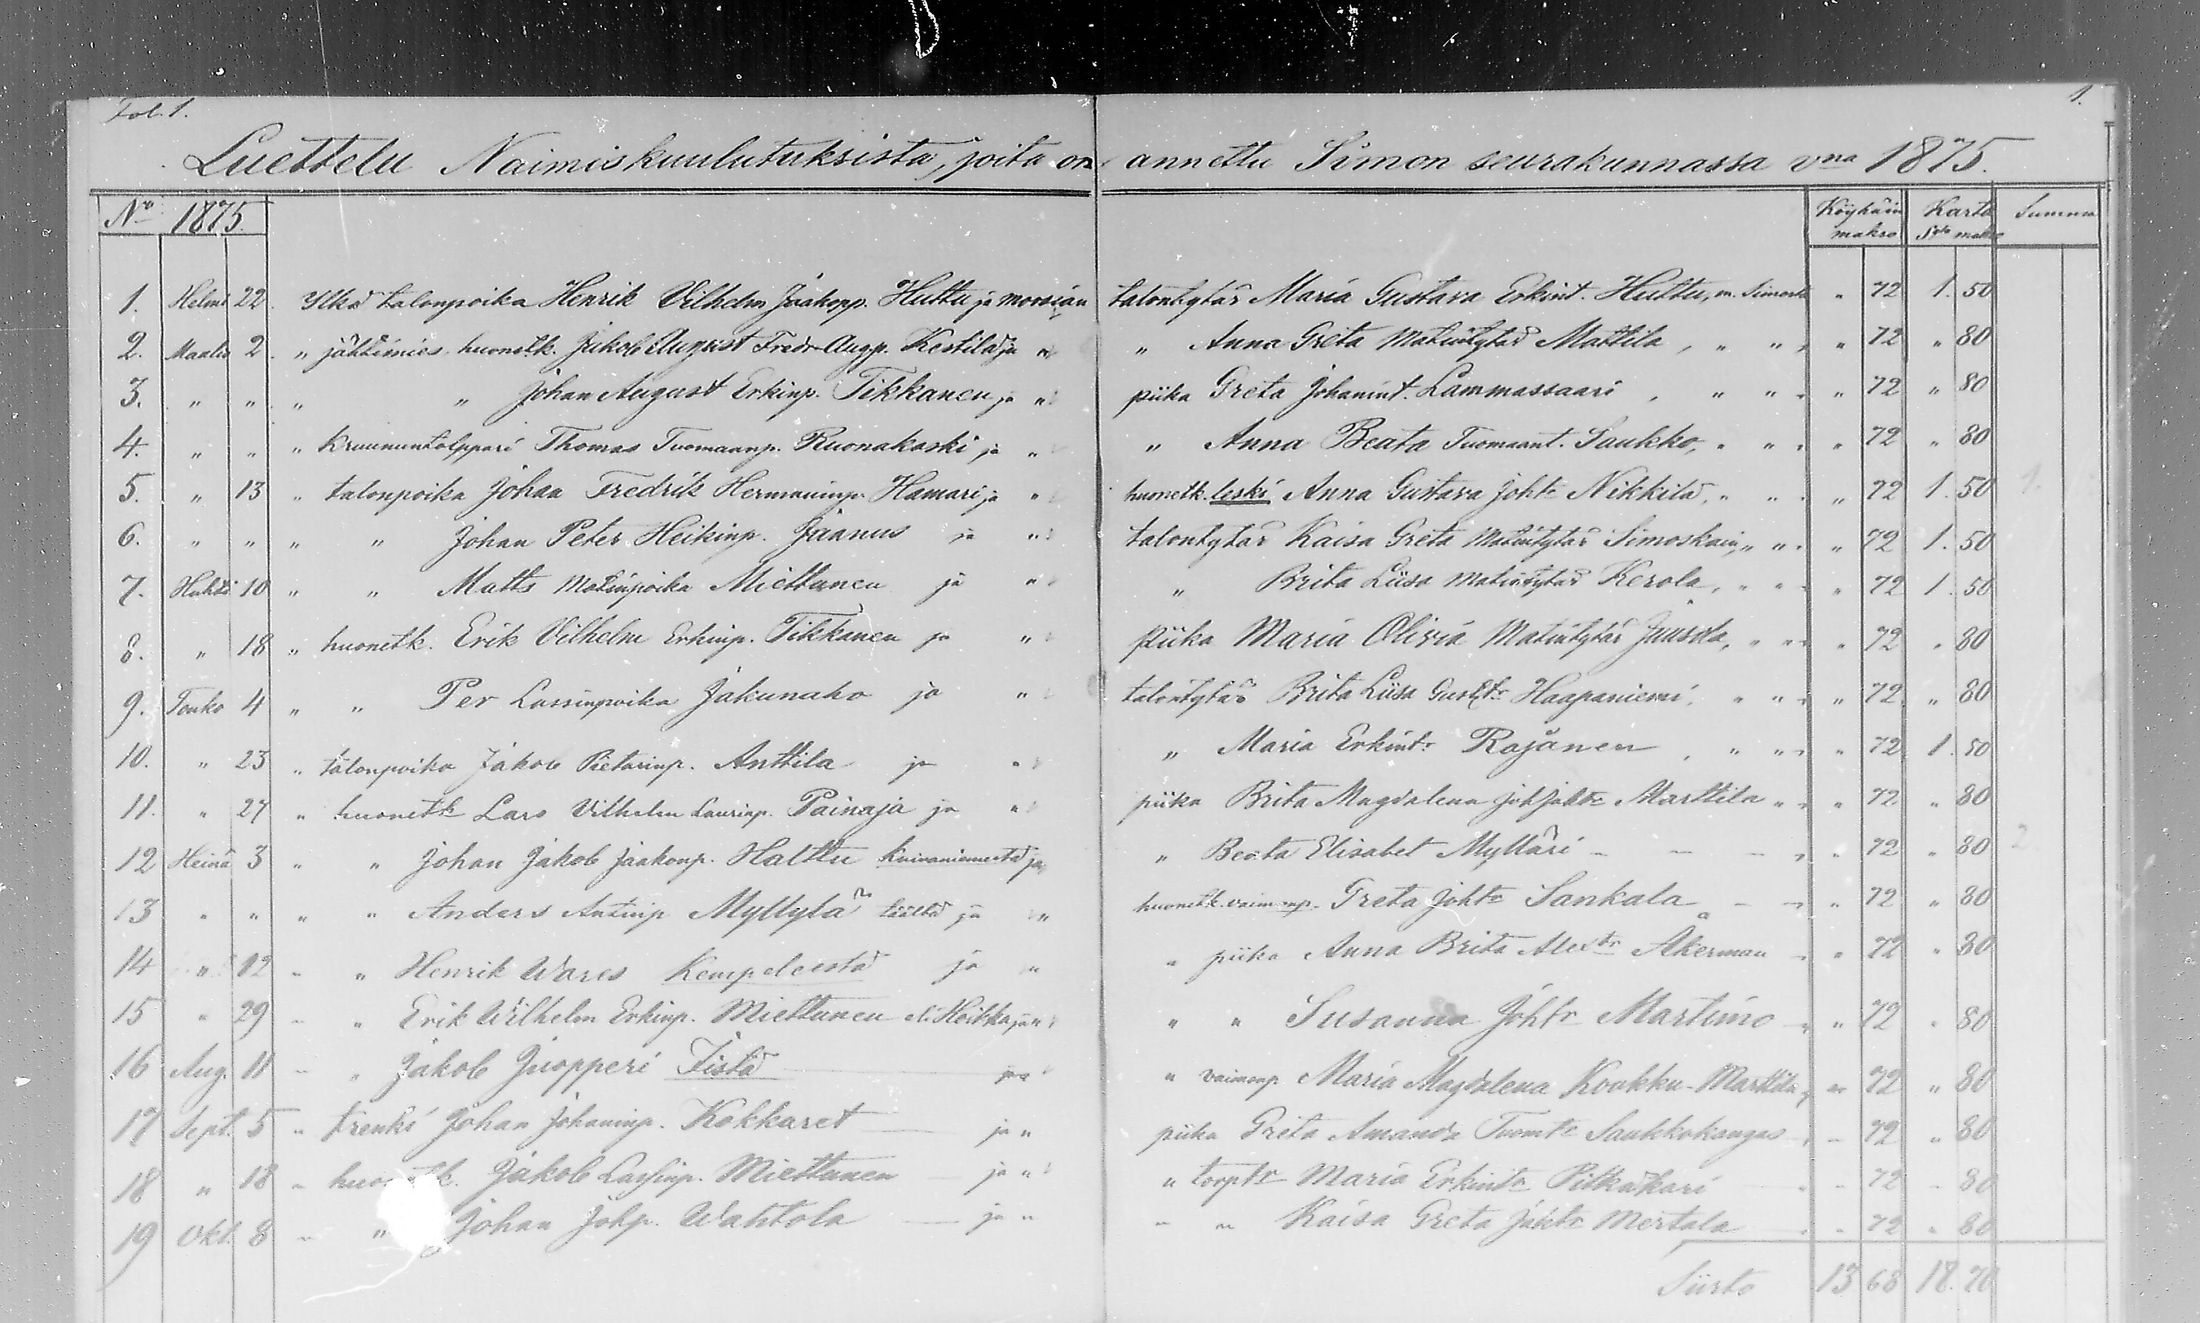 Fol. 1. 1.
Luettelu Naimiskuulutuksista, joita on annettu Simon seurakunnassa vna 1875.
No 1875. Köyhäin makso Karta Sda makso Summa
1. Helmi 22 Ylkä talonpoika Henrik Vilhelm Jaakopp. Huttu ja morsian talontytär Maria Gustava Erkint. Huttu, m. Simosta " 72 1. 50
2. Maalis 2 " jähtimies huonetk. Jakob August Fredr. Augp. Kestilä ja " " Anna Greta Matintytär Mattila, " " " 72 " 80
3. " " " " Johan August Erkinp. Tikkanen ja " piika Greta Johanint. Lammassaari, " " " 72 " 80
4. " " " kruununtolppari Thomas Tuomaanp. Ruonakoski ja " " Anna Beata Tuomaant. Saukko, " " " 72 " 80
5. " 13 " talonpoika Johan Fredrik Hermaninp. Hamari ja " huonetk. leski Anna Gustava Joht. Nikkilä, " " " 72 1. 50 1.
6. " " " " Johan Peter Heikinp. Jaanus ja " talontytär Kaisa Greta Matintytär Simoskain, " " " 72 1. 50
7. Huhti 10 " " Matts Matinpoika Miettunen ja " " Brita Liisa Matintytär Kerola, " " " 72 1. 50
8. " 18 " huonetk. Erik Vilhelm Erkinp. Tikkanen ja " Piika Maria Olivia Matintytär Juusola, " " " 72 " 80
9. Touko 4 " " Per Lassinpoika Jakunaho ja " talontytär Brita Liisa Gusttr Haapaniemi, " " " 72 " 80
10. " 23 " talonpoika Jakob Pietarinp. Anttila ja " " Maria Erkintr Rajänen, " " " 72 1. 50
11. " 27 " huonetk Lars Vilhelm Laurinp. Painaja ja " piika Brita Magdalena Johtr Marttila " " " 72 " 80
12 Heinä 3 " " Johan Jakob Jaakonp. Halttu Kuivaniemestä ja " Beata Elisabet Mylläri - - - " 72 " 80 2
13 " " " " Anders Antinp Myllylä täältä ja " huonetk. vaimonp. Greta Johtr Sankala - " 72 " 80
14 " 12 " " Henrik Wares Kempeleestä ja " " piika Anna Brita Alextr Åkerman " 72 " 80
15 " 29 " " Erik Wilhelm Erkinp. Miettunen eli Heikka ja " " " Susanna Johtr Martimo " " 72 " 80
16 Aug. 11 " " Jakob Juopperi Iistä ja " " vaimonp Maria Magdalena Koukku-Marttila " 72 " 80
17 Sept. 5 " trenki Johan Johaninp. Kokkaret ja " piika Greta Amanda Tuomtr Saukkokangas " 72 " 80
18 " 18 " Jakob Lassinp. Miettunen ja " " torptr Maria Erkintr Pitkäkari " 72 " 80
19 Okt. 8 " " Johan Johp. Wahtola ja " " " Kaisa Greta Johtr Mertala " 72 " 80
Siirto 13 68 18. 70